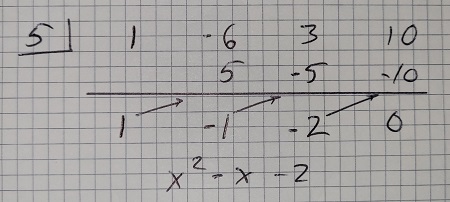 5 1 -6 3 10
5 -5 -10
1 -1 -2 0
x² - x - 2